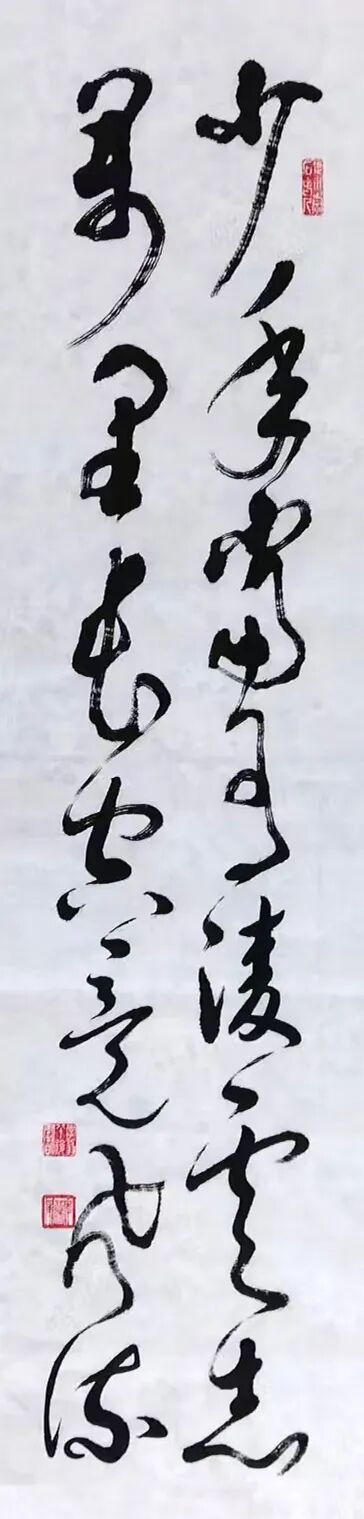 少年當有凌雲志
萬里長空竞風流